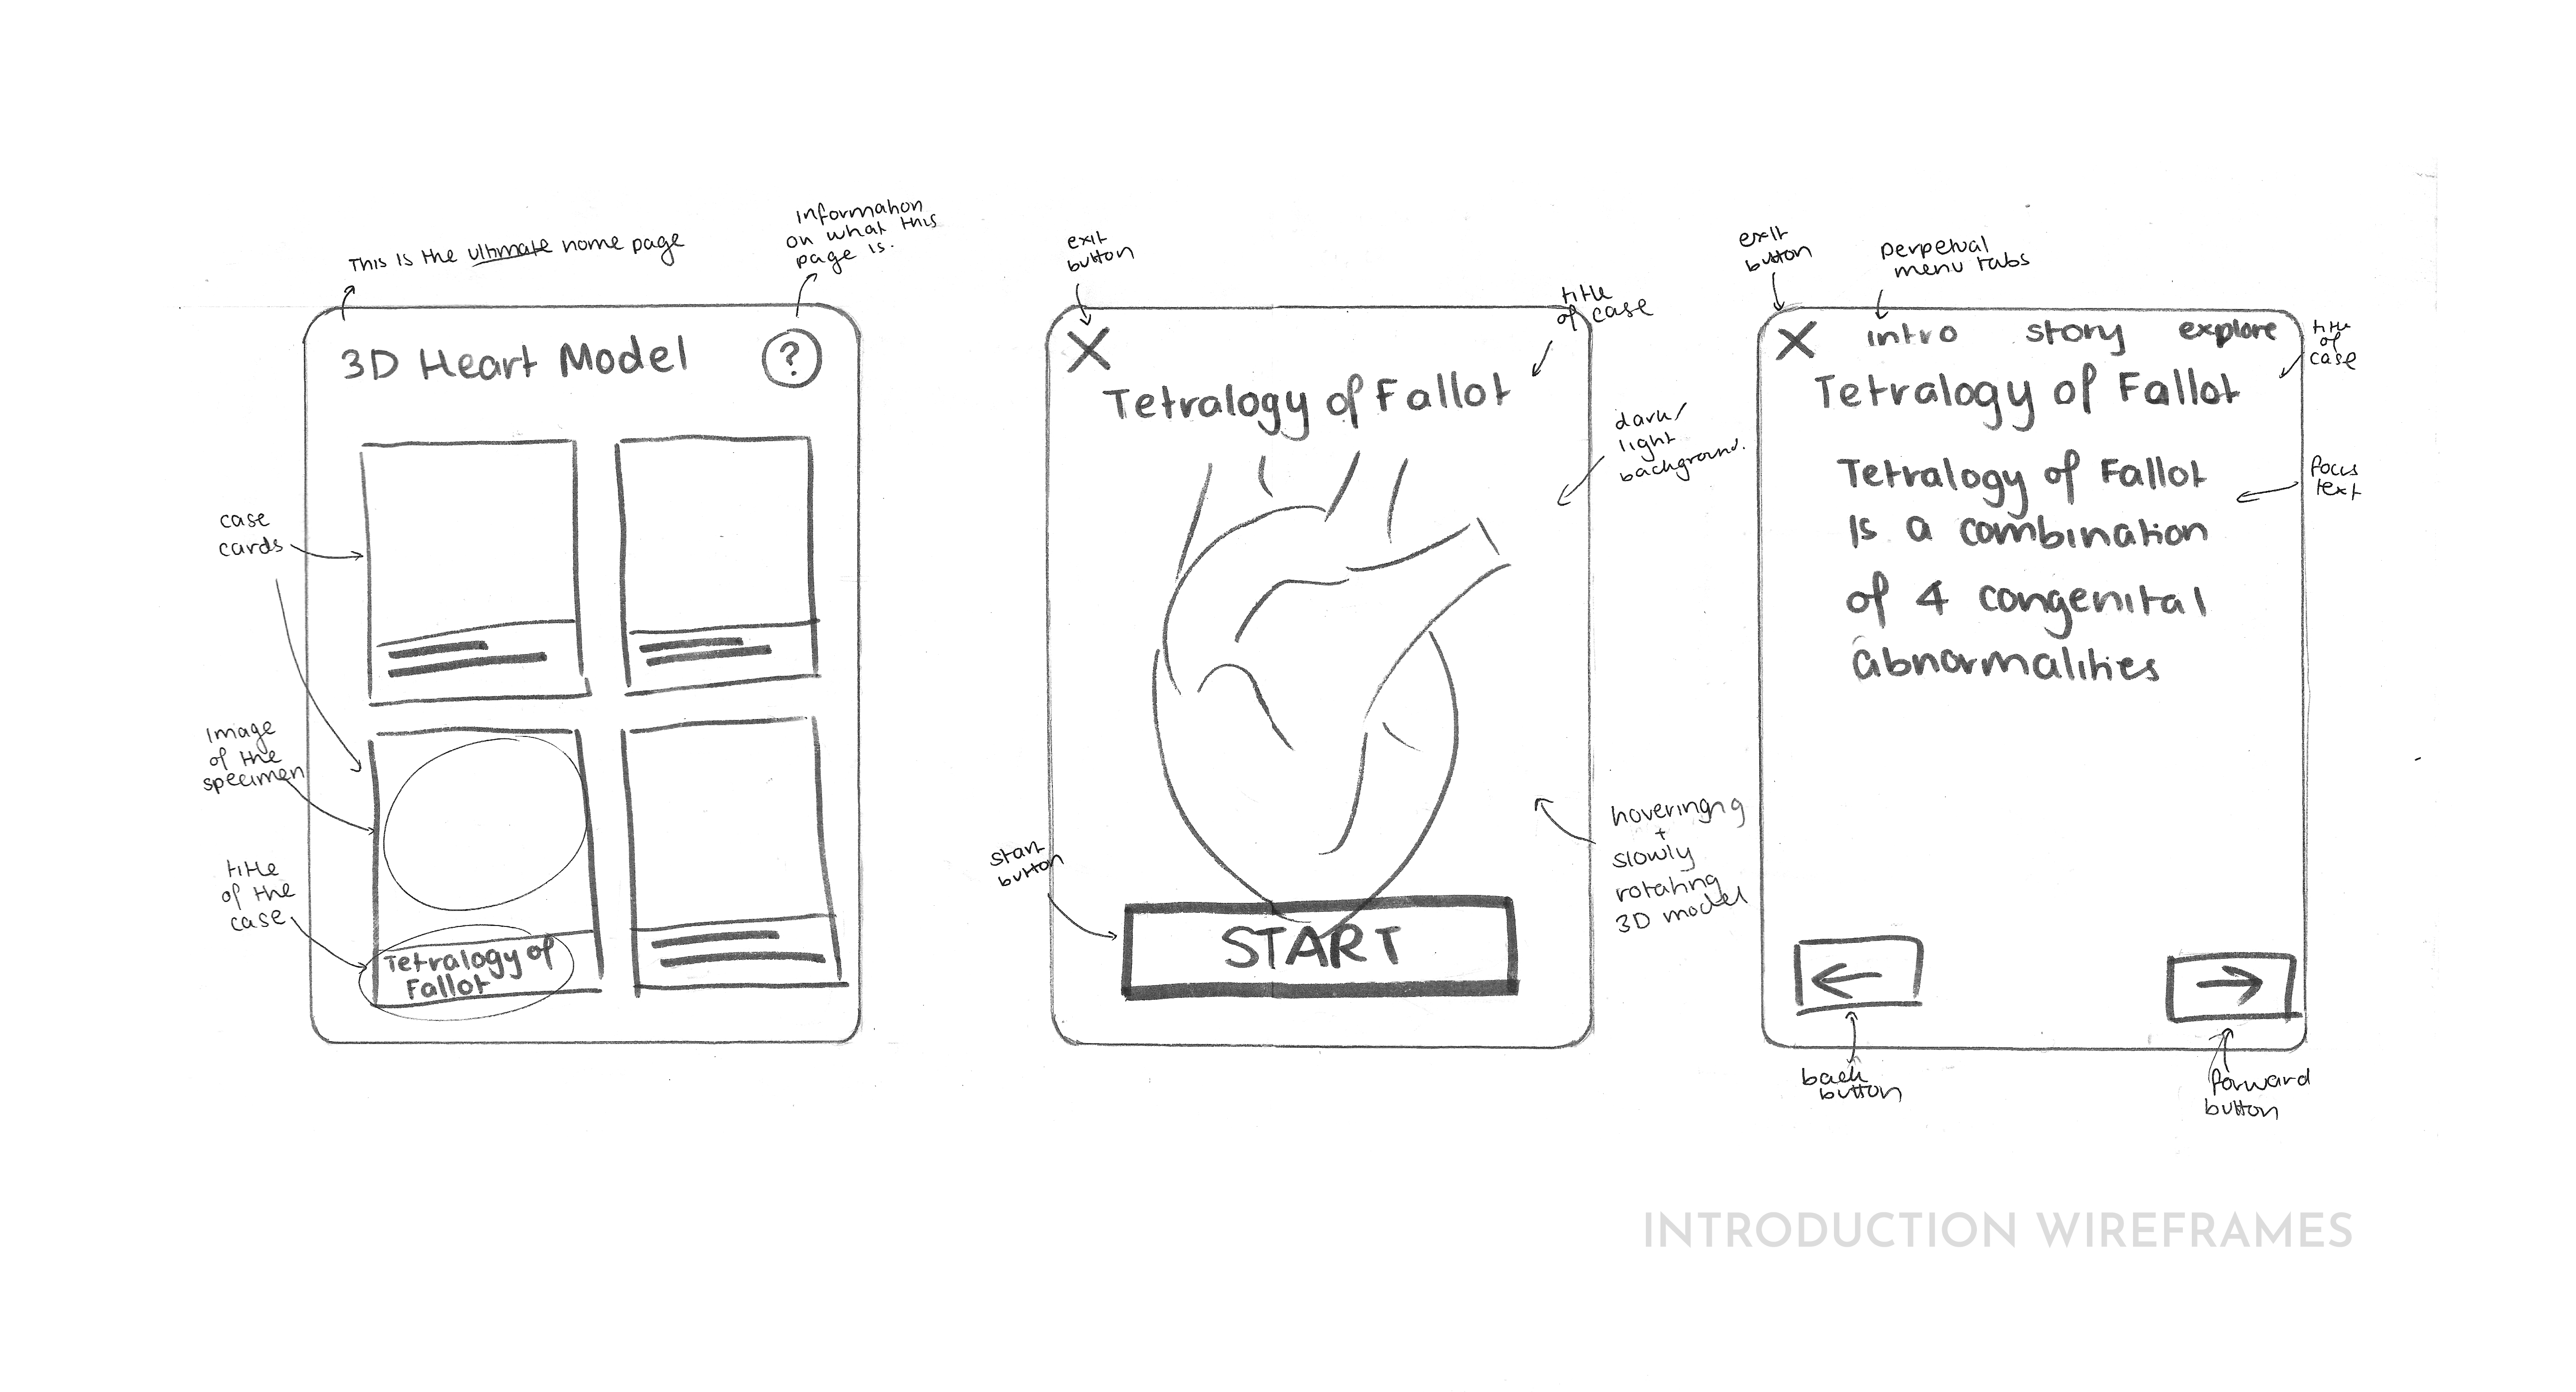 This is the ultimate home page
information
on what this
page is.
3D Heart Model
?
case
cards
image
of the
specimen
title
of the
case
Tetralogy of
Fallot
exit
button
title
of case
X
Tetralogy of Fallot
dark/
light
background.
hoveringng
+
slowly
rotating
3D model
start
button
START
exit
button
perpetual
menu tabs
X intro story explore
title
of
case
Tetralogy of Fallot
focus
text
Tetralogy of Fallot
is a combination
of 4 congenital
abnormalities
back
button
forward
button
INTRODUCTION WIREFRAMES